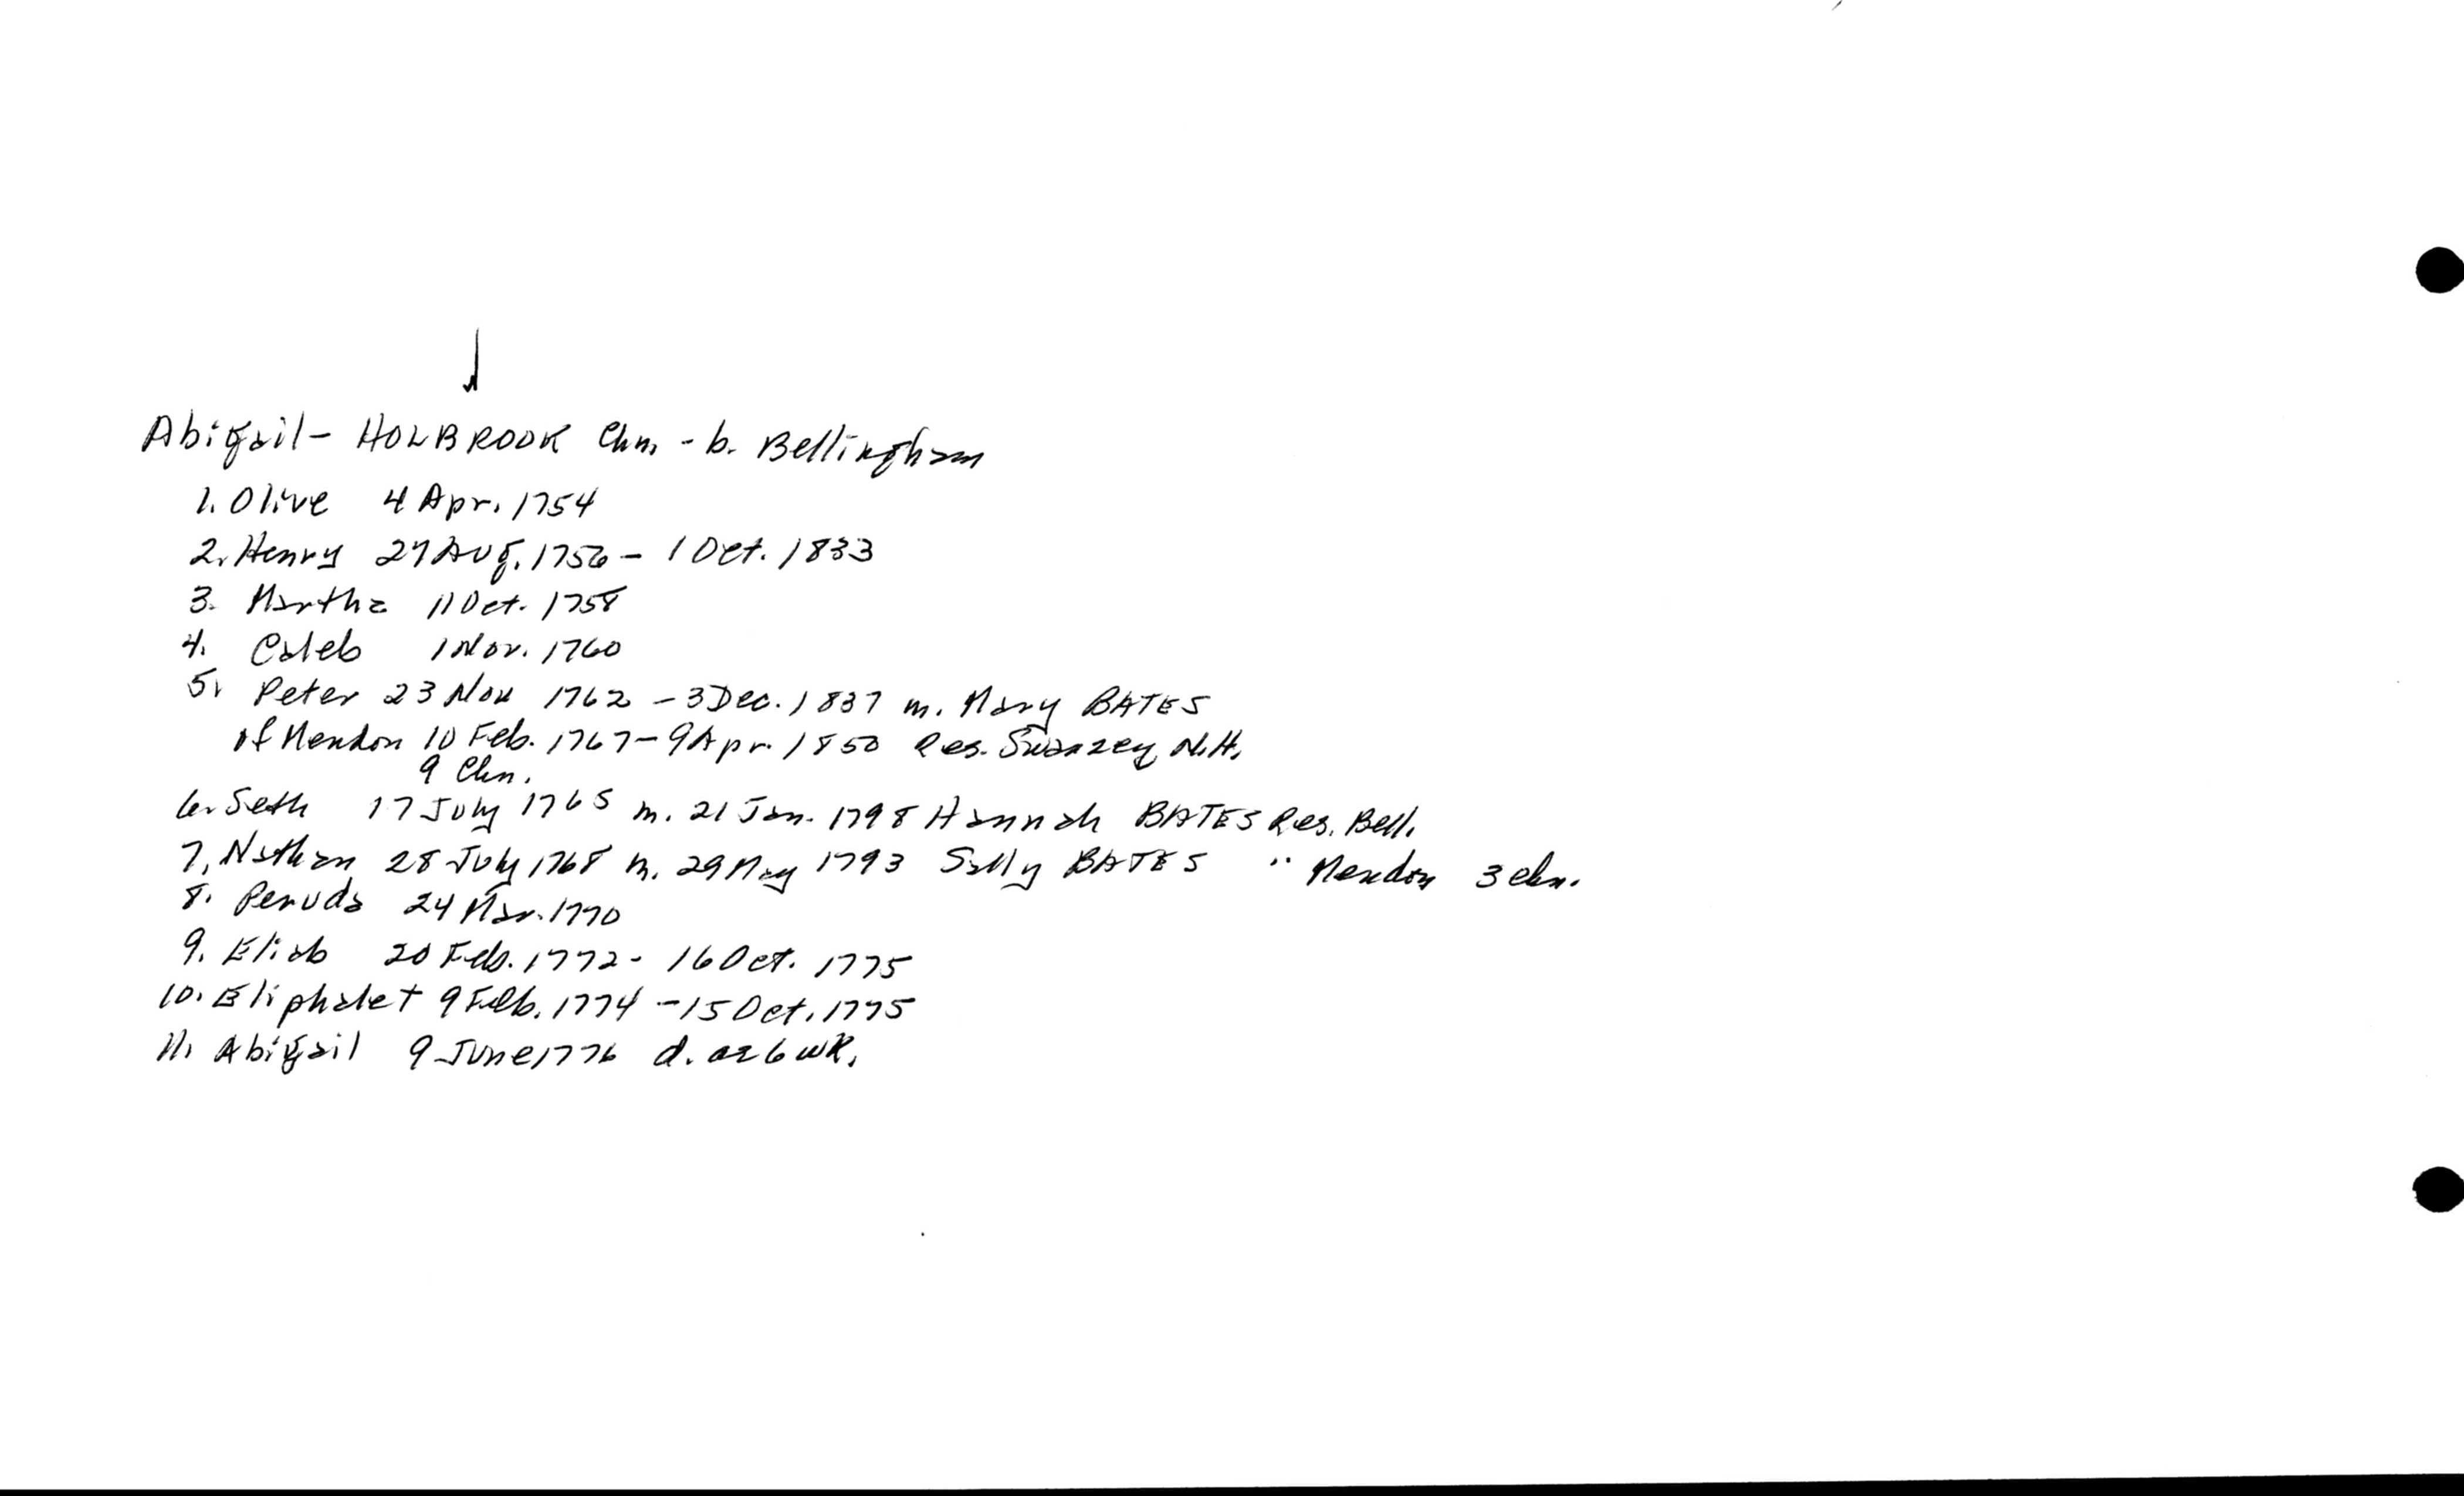 Abigail - HOLBROOK Chn. - b. Bellingham
1. Olive 4 Apr. 1754
2. Henry 27 Aug. 1756 - 1 Oct. 1833
3. Martha 11 Oct. 1758
4. Caleb 1 Nov. 1760
5. Peter 23 Nov 1762 - 3 Dec. 1837 m. Mary BATES
of Mendon 10 Feb. 1767 - 9 Apr. 1850 Res. Swanzey N.H.
9 Chn.
6. Seth 17 July 1765 m. 21 Jan. 1798 Hannah BATES Res. Bell.
7. Nathan 28 July 1768 m. 29 May 1793 Sally BATES " Mendon 3 chn.
8. Peruda 24 Mar. 1770
9. Eliab 20 Feb. 1772 - 16 Oct. 1775
10. Eliphalet 9 Feb. 1774 - 15 Oct. 1775
11. Abigail 9 June 1776 d. ae 6 wk.